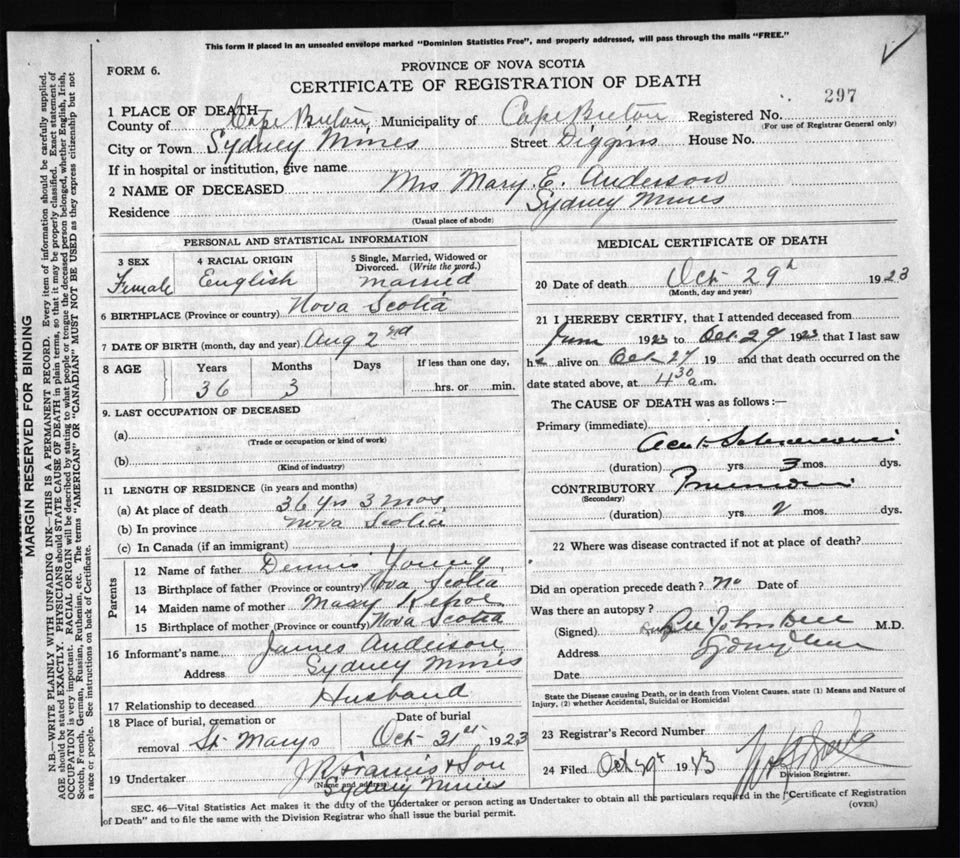 This form if placed in an unsealed envelope marked "Dominion Statistics Free", and properly addressed, will pass through the mails "FREE."
FORM 6.
PROVINCE OF NOVA SCOTIA
CERTIFICATE OF REGISTRATION OF DEATH
297
1 PLACE OF DEATH—
County of Cape Breton Municipality of Cape Breton Registered No.
(For use of Registrar General only)
City or Town Sydney Mines Street Diggins House No.
If in hospital or institution, give name
2 NAME OF DECEASED Mrs Mary. E. Anderson
Residence Sydney Mines
(Usual place of abode)
PERSONAL AND STATISTICAL INFORMATION
3 SEX 4 RACIAL ORIGIN 5 Single, Married, Widowed or Divorced. (Write the word.)
Female English married
6 BIRTHPLACE (Province or country) Nova Scotia
7 DATE OF BIRTH (month, day and year) Aug 2nd
8 AGE Years Months Days If less than one day,
36 3 hrs. or min.
9. LAST OCCUPATION OF DECEASED
(a)
(Trade or occupation or kind of work)
(b)
(Kind of industry)
11 LENGTH OF RESIDENCE (in years and months)
(a) At place of death 36 yrs 3 mos
(b) In province Nova Scotia
(c) In Canada (if an immigrant)
Parents
12 Name of father Dennis Young
13 Birthplace of father (Province or country) Nova Scotia
14 Maiden name of mother Mary
15 Birthplace of mother (Province or country) Nova Scotia
16 Informant's name James Anderson
Address Sydney Mines
17 Relationship to deceased Husband
18 Place of burial, cremation or Date of burial
removal St Marys Oct 31st 1923
19 Undertaker J R Francis & Son
(Name and address)
Sydney Mines
MEDICAL CERTIFICATE OF DEATH
20 Date of death Oct 29th 1923
(Month, day and year)
21 I HEREBY CERTIFY, that I attended deceased from
June 1923 to Oct. 29 1923 that I last saw
h alive on Oct 27 19 and that death occurred on the
date stated above, at 11 30 a.m.
The CAUSE OF DEATH was as follows:—
Primary (immediate)
(duration) yrs. 3 mos. dys.
CONTRIBUTORY
(Secondary)
(duration) yrs. 2 mos. dys.
22 Where was disease contracted if not at place of death?
Did an operation precede death? No Date of
Was there an autopsy?
(Signed) M.D.
Address Sydney Mines
Date
State the Disease causing Death, or in death from Violent Causes, state (1) Means and Nature of
Injury, (2) whether Accidental, Suicidal or Homicidal
23 Registrar's Record Number
24 Filed Oct 19
Division Registrar.
SEC. 46—Vital Statistics Act makes it the duty of the Undertaker or person acting as Undertaker to obtain all the particulars required in the "Certificate of Registration
of Death" and to file the same with the Division Registrar who shall issue the burial permit.
(OVER)
MARGIN RESERVED FOR BINDING
N.B.—WRITE PLAINLY WITH UNFADING INK—THIS IS A PERMANENT RECORD. Every item of information should be carefully supplied.
AGE should be stated EXACTLY. PHYSICIANS should STATE CAUSE OF DEATH in plain terms, so that it may be properly classified. Exact statement of
OCCUPATION is very important. RACIAL ORIGIN will be described by stating to what people or tongue the deceased person belonged, whether English, Irish,
Scotch, French, German, Russian, Ruthenian, etc. The terms "AMERICAN" OR "CANADIAN" MUST NOT BE USED as they express citizenship but not
a race or people. See instructions on back of Certificate.